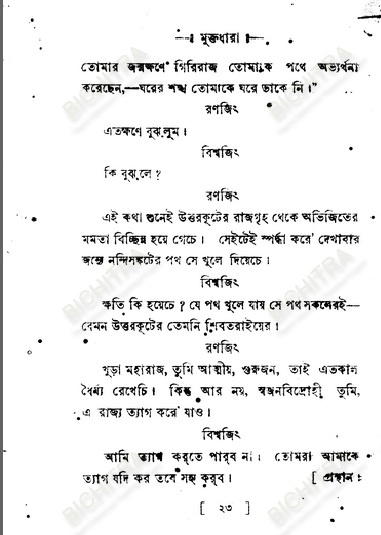 মুক্তধারা
তোমার জন্মক্ষণে গিরিরাজ তোমাকে পথে অভ্যর্থনা
করেছেন,—ঘরের শঙ্খ তোমাকে ঘরে ডাকে নি।”
রণজিৎ
এতক্ষণে বুঝলুম।
বিশ্বজিৎ
কি বুঝলে ?
রণজিৎ
এই কথা শুনেই উত্তরকূটের রাজগৃহ থেকে অভিজিতের
মমতা বিচ্ছিন্ন হয়ে গেচে। সেইটেই স্পর্দ্ধা করে’ দেখাবার
জন্যে নন্দিসঙ্কটের পথ সে খুলে দিয়েচে।
বিশ্বজিৎ
ক্ষতি কি হয়েচে ? যে পথ খুলে যায় সে পথ সকলেরই—
যেমন উত্তরকূটের তেমনি শিবতরাইয়ের।
রণজিৎ
খুড়া মহারাজ, তুমি আত্মীয়, গুরুজন, তাই এতকাল
ধৈর্য্য রেখেচি। কিন্তু আর নয়, স্বজনবিদ্রোহী তুমি,
এ রাজ্য ত্যাগ করে’ যাও।
বিশ্বজিৎ
আমি ত্যাগ করতে পারব না। তোমরা আমাকে
ত্যাগ যদি কর তবে সহ্য করব। [ প্রস্থান।
[ ২৩ ]
BICHITRA